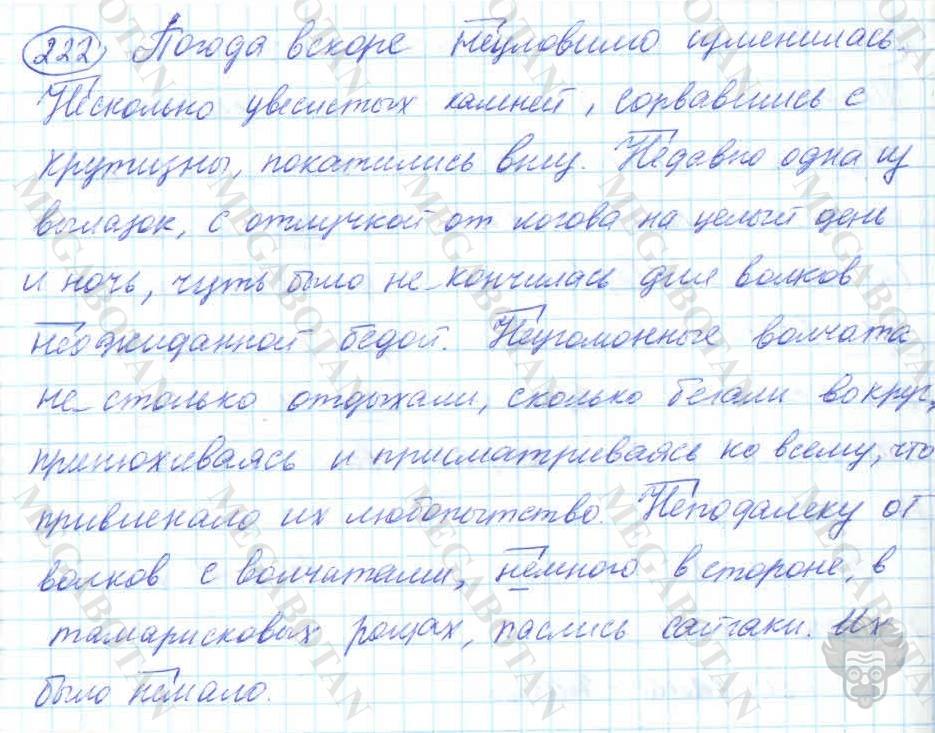 222 Погода вскоре неуловимо изменилась.
Несколько увесистых камней, сорвавшись с
крутизны, покатились вниз. Недавно одна из
вылазок, с отлучкой от логова на целый день
и ночь, чуть было не кончилась для волков
неожиданной бедой. Неугомонные волчата
не столько отдыхали, сколько бегали вокруг,
принюхиваясь и присматриваясь ко всему, что
привлекало их любопытство. Неподалеку от
волков с волчатами, немного в стороне, в
тамарисковых рощах, паслись сайгаки. Их
было немало.
MEGABOTAN